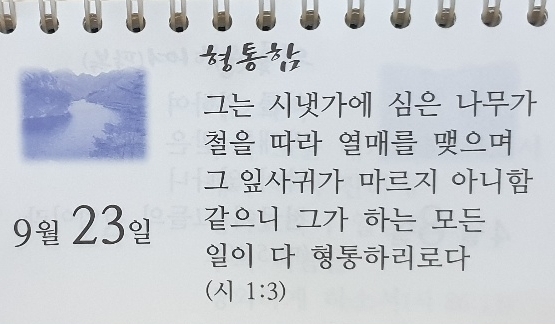 형통함
그는 시냇가에 심은 나무가
철을 따라 열매를 맺으며
그 잎사귀가 마르지 아니함
같으니 그가 하는 모든
일이 다 형통하리로다
(시 1:3)
9월 23일